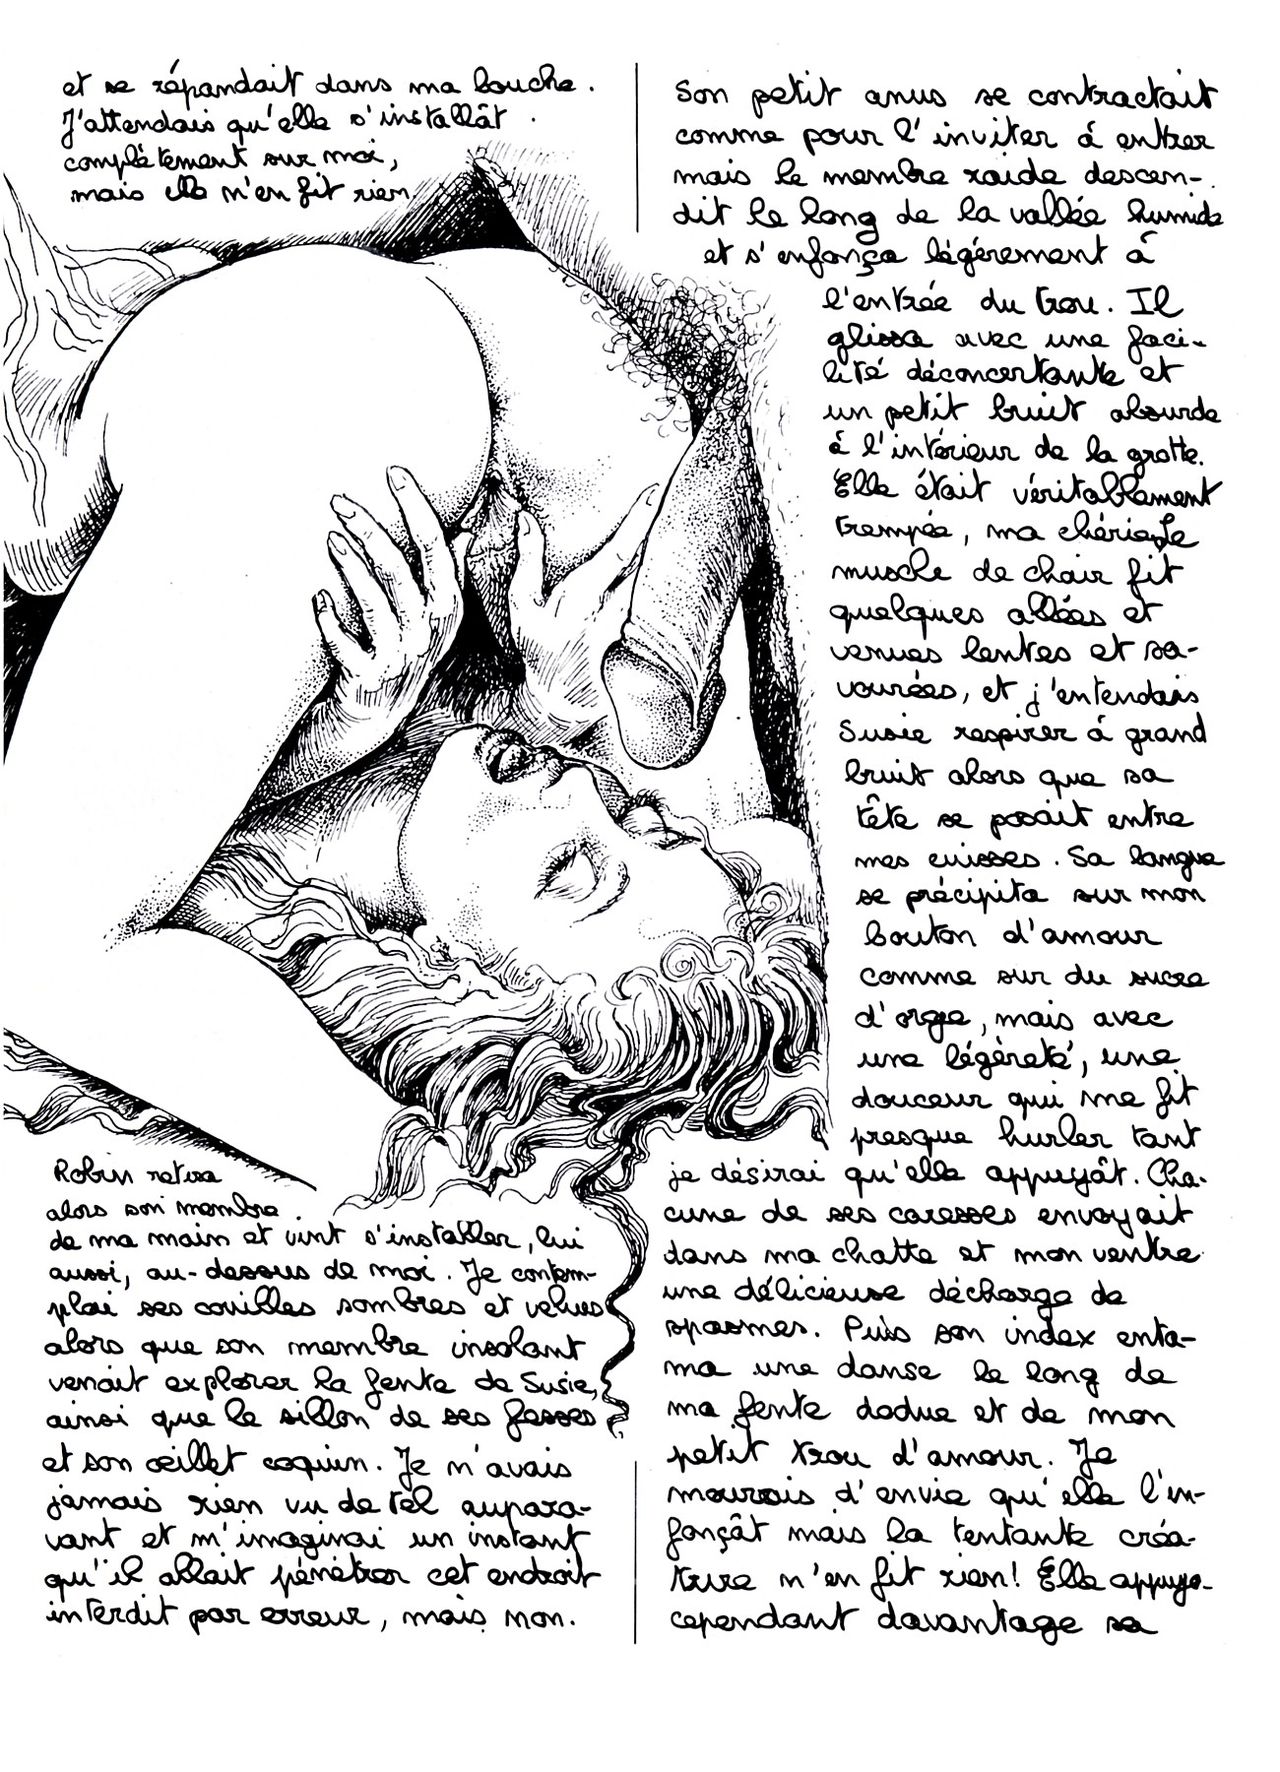 et se répandait dans ma bouche.
J'attendais qu'elle s'installât
complètement sur moi,
mais elle n'en fit rien
Robin retira
alors son membre
de ma main et vint s'installer, lui
aussi, au-dessus de moi. Je contem-
plai ses couilles sombres et velues
alors que son membre insolant
venait explorer la fente de Susie,
ainsi que le sillon de ses fesses
et son œillet coquin. Je n'avais
jamais rien vu de tel aupara-
vant et m'imaginai un instant
qu'il allait pénétrer cet endroit
interdit par erreur, mais non.
Son petit anus se contractait
comme pour l'inviter à entrer
mais le membre raide descen-
dit le long de la vallée humide
et s'enfonça légèrement à
l'entrée du trou. Il
glissa avec une faci-
lité déconcertante et
un petit bruit absurde
à l'intérieur de la grotte.
Elle était véritablement
trempée, ma chérie. Le
muscle de chair fit
quelques allées et
venues lentes et sa-
vourées, et j'entendais
Susie respirer à grand
bruit alors que sa
tête se posait entre
mes cuisses. Sa langue
se précipita sur mon
bouton d'amour
comme sur du sucre
d'orge, mais avec
une légèreté, une
douceur qui me fit
presque hurler tant
je désirai qu'elle appuyât. Cha-
cune de ses caresses envoyait
dans ma chatte et mon ventre
une délicieuse décharge de
spasmes. Puis son index enta-
ma une danse le long de
ma fente dodue et de mon
petit trou d'amour. Je
mourais d'envie qu'elle l'en-
fonçât mais la tentante créa-
ture n'en fit rien! Elle appuya
cependant davantage sa